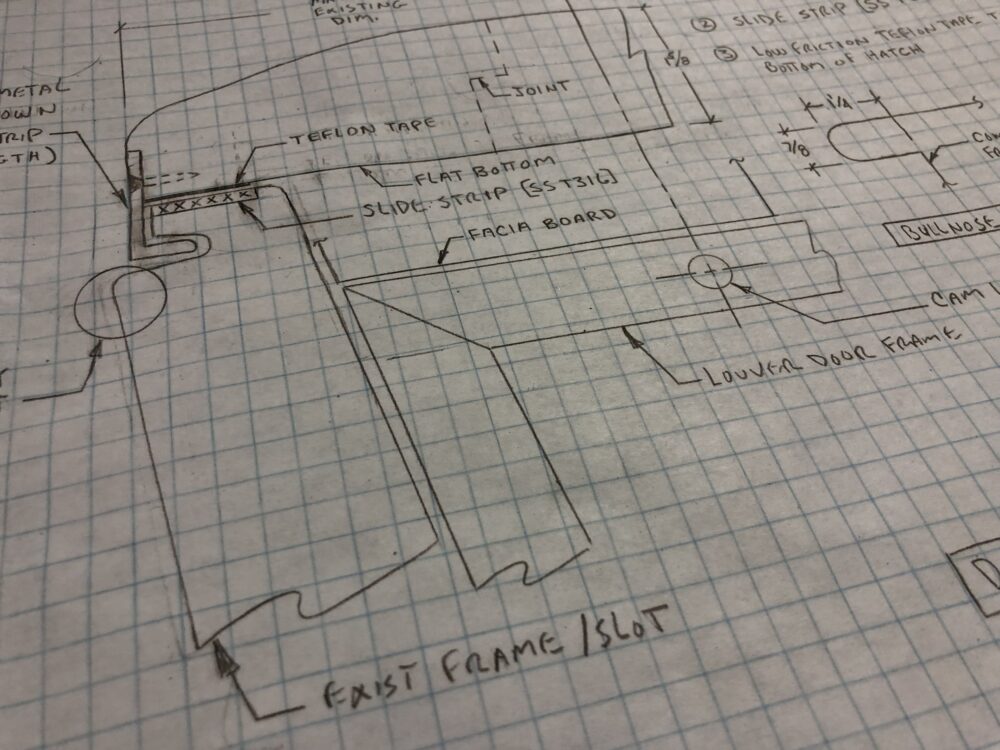 EXISTING
DIM.
② SLIDE STRIP (SS
③ LOW FRICTION TEFLON TAPE T
BOTTOM OF HATCH
METAL
OWN
TRIP
GTH)
JOINT
1 5/8
1/4
7/8
TEFLON TAPE
FLAT BOTTOM
SLIDE STRIP [SST316]
FACIA BOARD
BULLNOSE
CAM
LOUVER DOOR FRAME
EXIST FRAME/SLOT